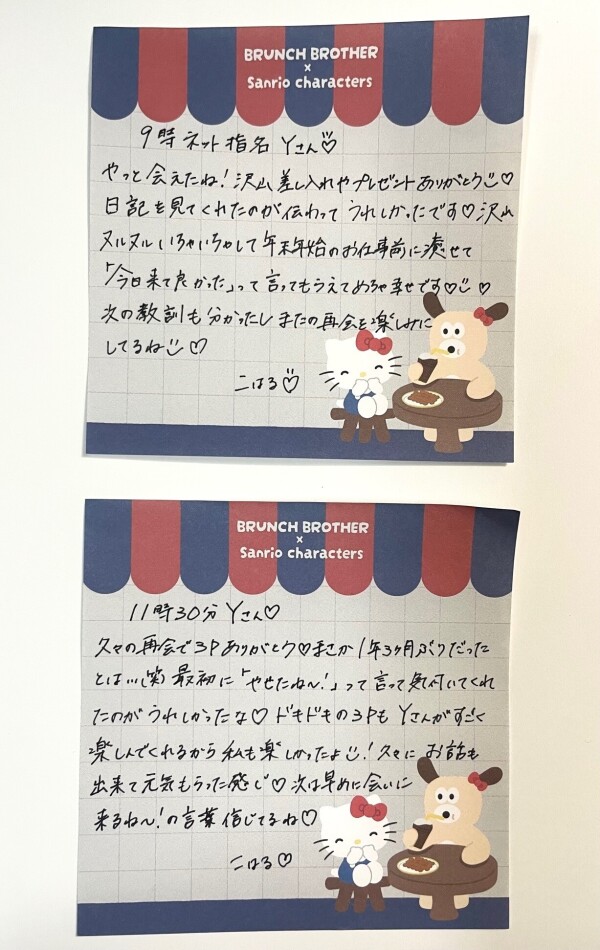 BRUNCH BROTHER
×
Sanrio characters
9時 ネット指名 Yさん♡
やっと会えたね！沢山差し入れやプレゼントありがとう♡
日記を見てくれたのが伝わってうれしかったです♡沢山
ヌルヌルいちゃいちゃして年末年始のお仕事前に癒せて
「今日来て良かった」って言ってもらえてめちゃ幸せです♡♡
次の教訓も分かったしまたの再会を楽しみに
してるね♡
こはる♡
BRUNCH BROTHER
×
Sanrio characters
11時30分 Yさん♡
久々の再会で3Pありがとう♡まさか1年3ヶ月ぶりだった
とは…(笑)最初に「やせたね〜！」って言って気付いてくれ
たのがうれしかったな♡ドキドキの3PもYさんがすごく
楽しんでくれるから私も楽しかったよ！久々にお話も
出来て元気もらった感じ♡次は早めに会いに
来るね〜！の言葉信じてるね♡
こはる♡